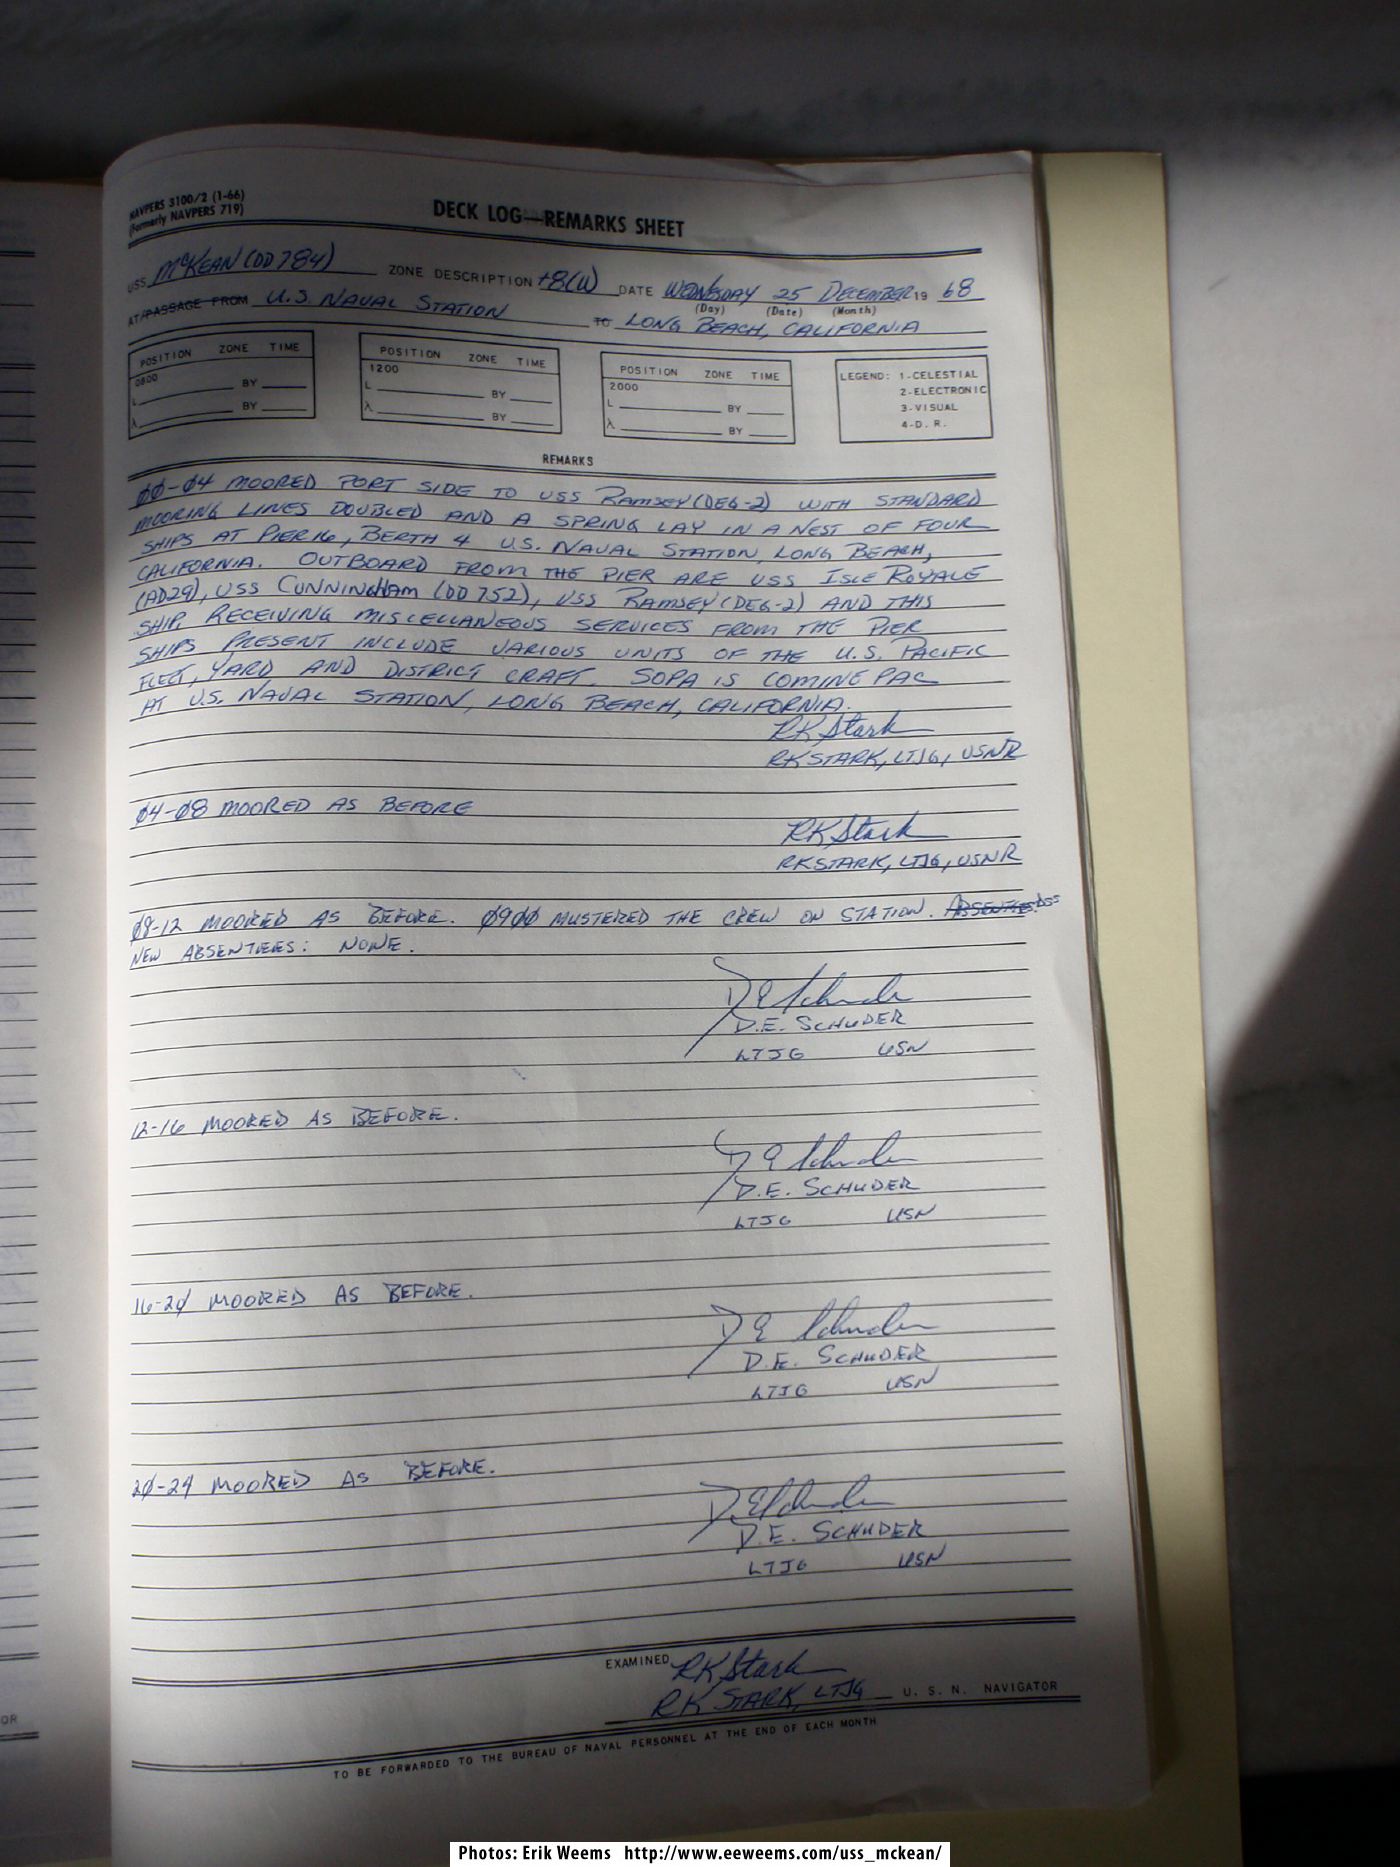 NAVPERS 3100/2 (1-66)
(Formerly NAVPERS 719)
DECK LOG—REMARKS SHEET
USS McKEAN (DD784) ZONE DESCRIPTION +8(U) DATE WEDNESDAY 25 DECEMBER 19 68
(Day) (Date) (Month)
AT/PASSAGE FROM U.S. NAVAL STATION TO LONG BEACH, CALIFORNIA
POSITION ZONE TIME
0800
L BY
λ BY
POSITION ZONE TIME
1200
L BY
λ BY
POSITION ZONE TIME
2000
L BY
λ BY
LEGEND: 1-CELESTIAL
2-ELECTRONIC
3-VISUAL
4-D. R.
REMARKS
ØØ-Ø4 MOORED PORT SIDE TO USS RAMSEY (DEG-2) WITH STANDARD
MOORING LINES DOUBLED AND A SPRING LAY IN A NEST OF FOUR
SHIPS AT PIER 16, BERTH 4 U.S. NAVAL STATION, LONG BEACH,
CALIFORNIA. OUTBOARD FROM THE PIER ARE USS ISLE ROYALE
(AD29), USS CUNNINGHAM (DD752), USS RAMSEY (DEG-2) AND THIS
SHIP. RECEIVING MISCELLANEOUS SERVICES FROM THE PIER
SHIPS PRESENT INCLUDE VARIOUS UNITS OF THE U.S. PACIFIC
FLEET, YARD AND DISTRICT CRAFT. SOPA IS COMINEPAC
AT U.S. NAVAL STATION, LONG BEACH, CALIFORNIA.
RK Stark
RK STARK, LTJG, USNR
Ø4-Ø8 MOORED AS BEFORE
RK Stark
RK STARK, LTJG, USNR
Ø8-12 MOORED AS BEFORE. Ø9ØØ MUSTERED THE CREW ON STATION. ABSENTEES: DES
NEW ABSENTEES: NONE.
D E Schuder
D.E. SCHUDER
LTJG USN
12-16 MOORED AS BEFORE.
D E Schuder
D.E. SCHUDER
LTJG USN
16-2Ø MOORED AS BEFORE.
D E Schuder
D.E. SCHUDER
LTJG USN
2Ø-24 MOORED AS BEFORE.
D.E. Schuder
D.E. SCHUDER
LTJG USN
EXAMINED RK Stark
RK STARK, LTJG U. S. N. NAVIGATOR
TO BE FORWARDED TO THE BUREAU OF NAVAL PERSONNEL AT THE END OF EACH MONTH
OR
Photos: Erik Weems http://www.eeweems.com/uss_mckean/